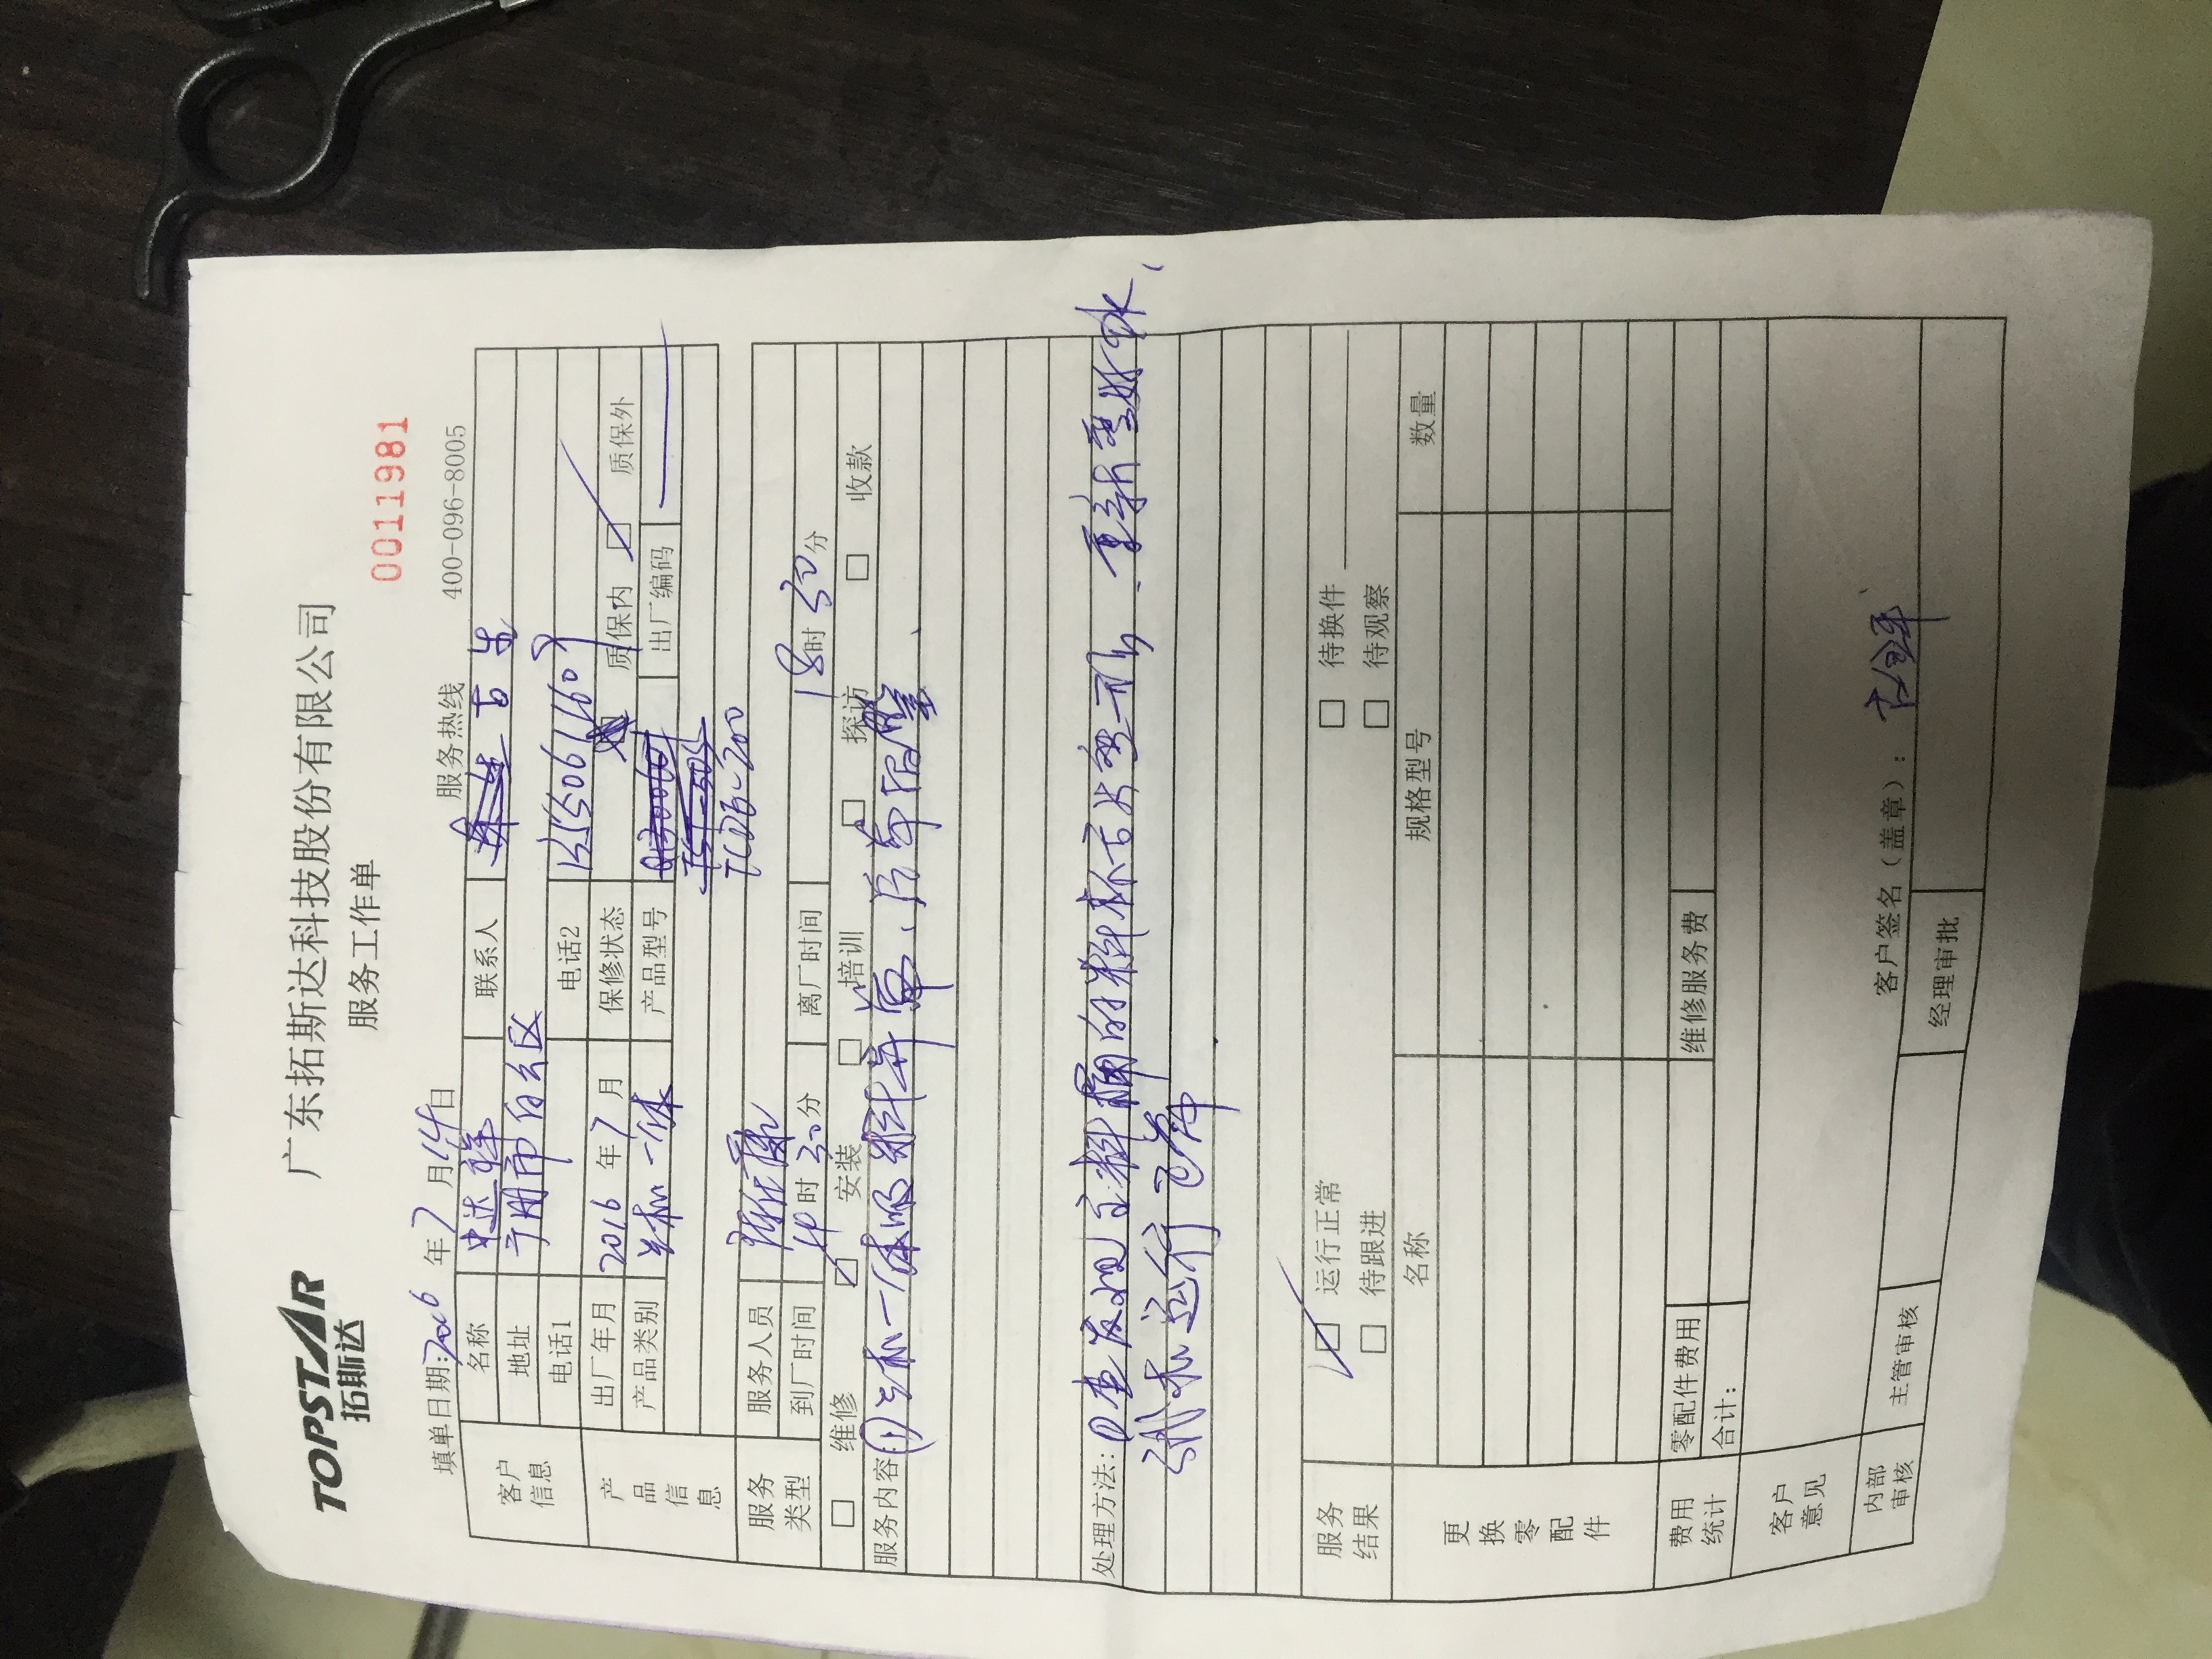 TOPSTAR
拓斯达
广东拓斯达科技股份有限公司
服务工作单
0011981
填单日期:2016 年 7 月 14 日 服务热线 400-096-8005
客户信息
名称 中达 联系人 古生
地址 广州市白云区
电话1 电话2
产品信息
出厂年月 2016 年 7 月 保修状态 质保内 质保外
产品类别 三机一体 产品型号 出厂编码
TCDB-200
服务类型
服务人员
到厂时间 时 30 分 离厂时间 18 时 30 分
维修 安装 培训 探访 收款
服务内容 ① 三机一体吸料异常、
处理方法: ①查发现主料桶的料杯 重新
机 运行正常
服务结果
运行正常 待换件
待跟进 待观察
更换零配件
名称 规格型号 数量
费用统计
零配件费用 维修服务费
合计:
客户意见
客户签名(盖章):
内部审核
主管审核 经理审批